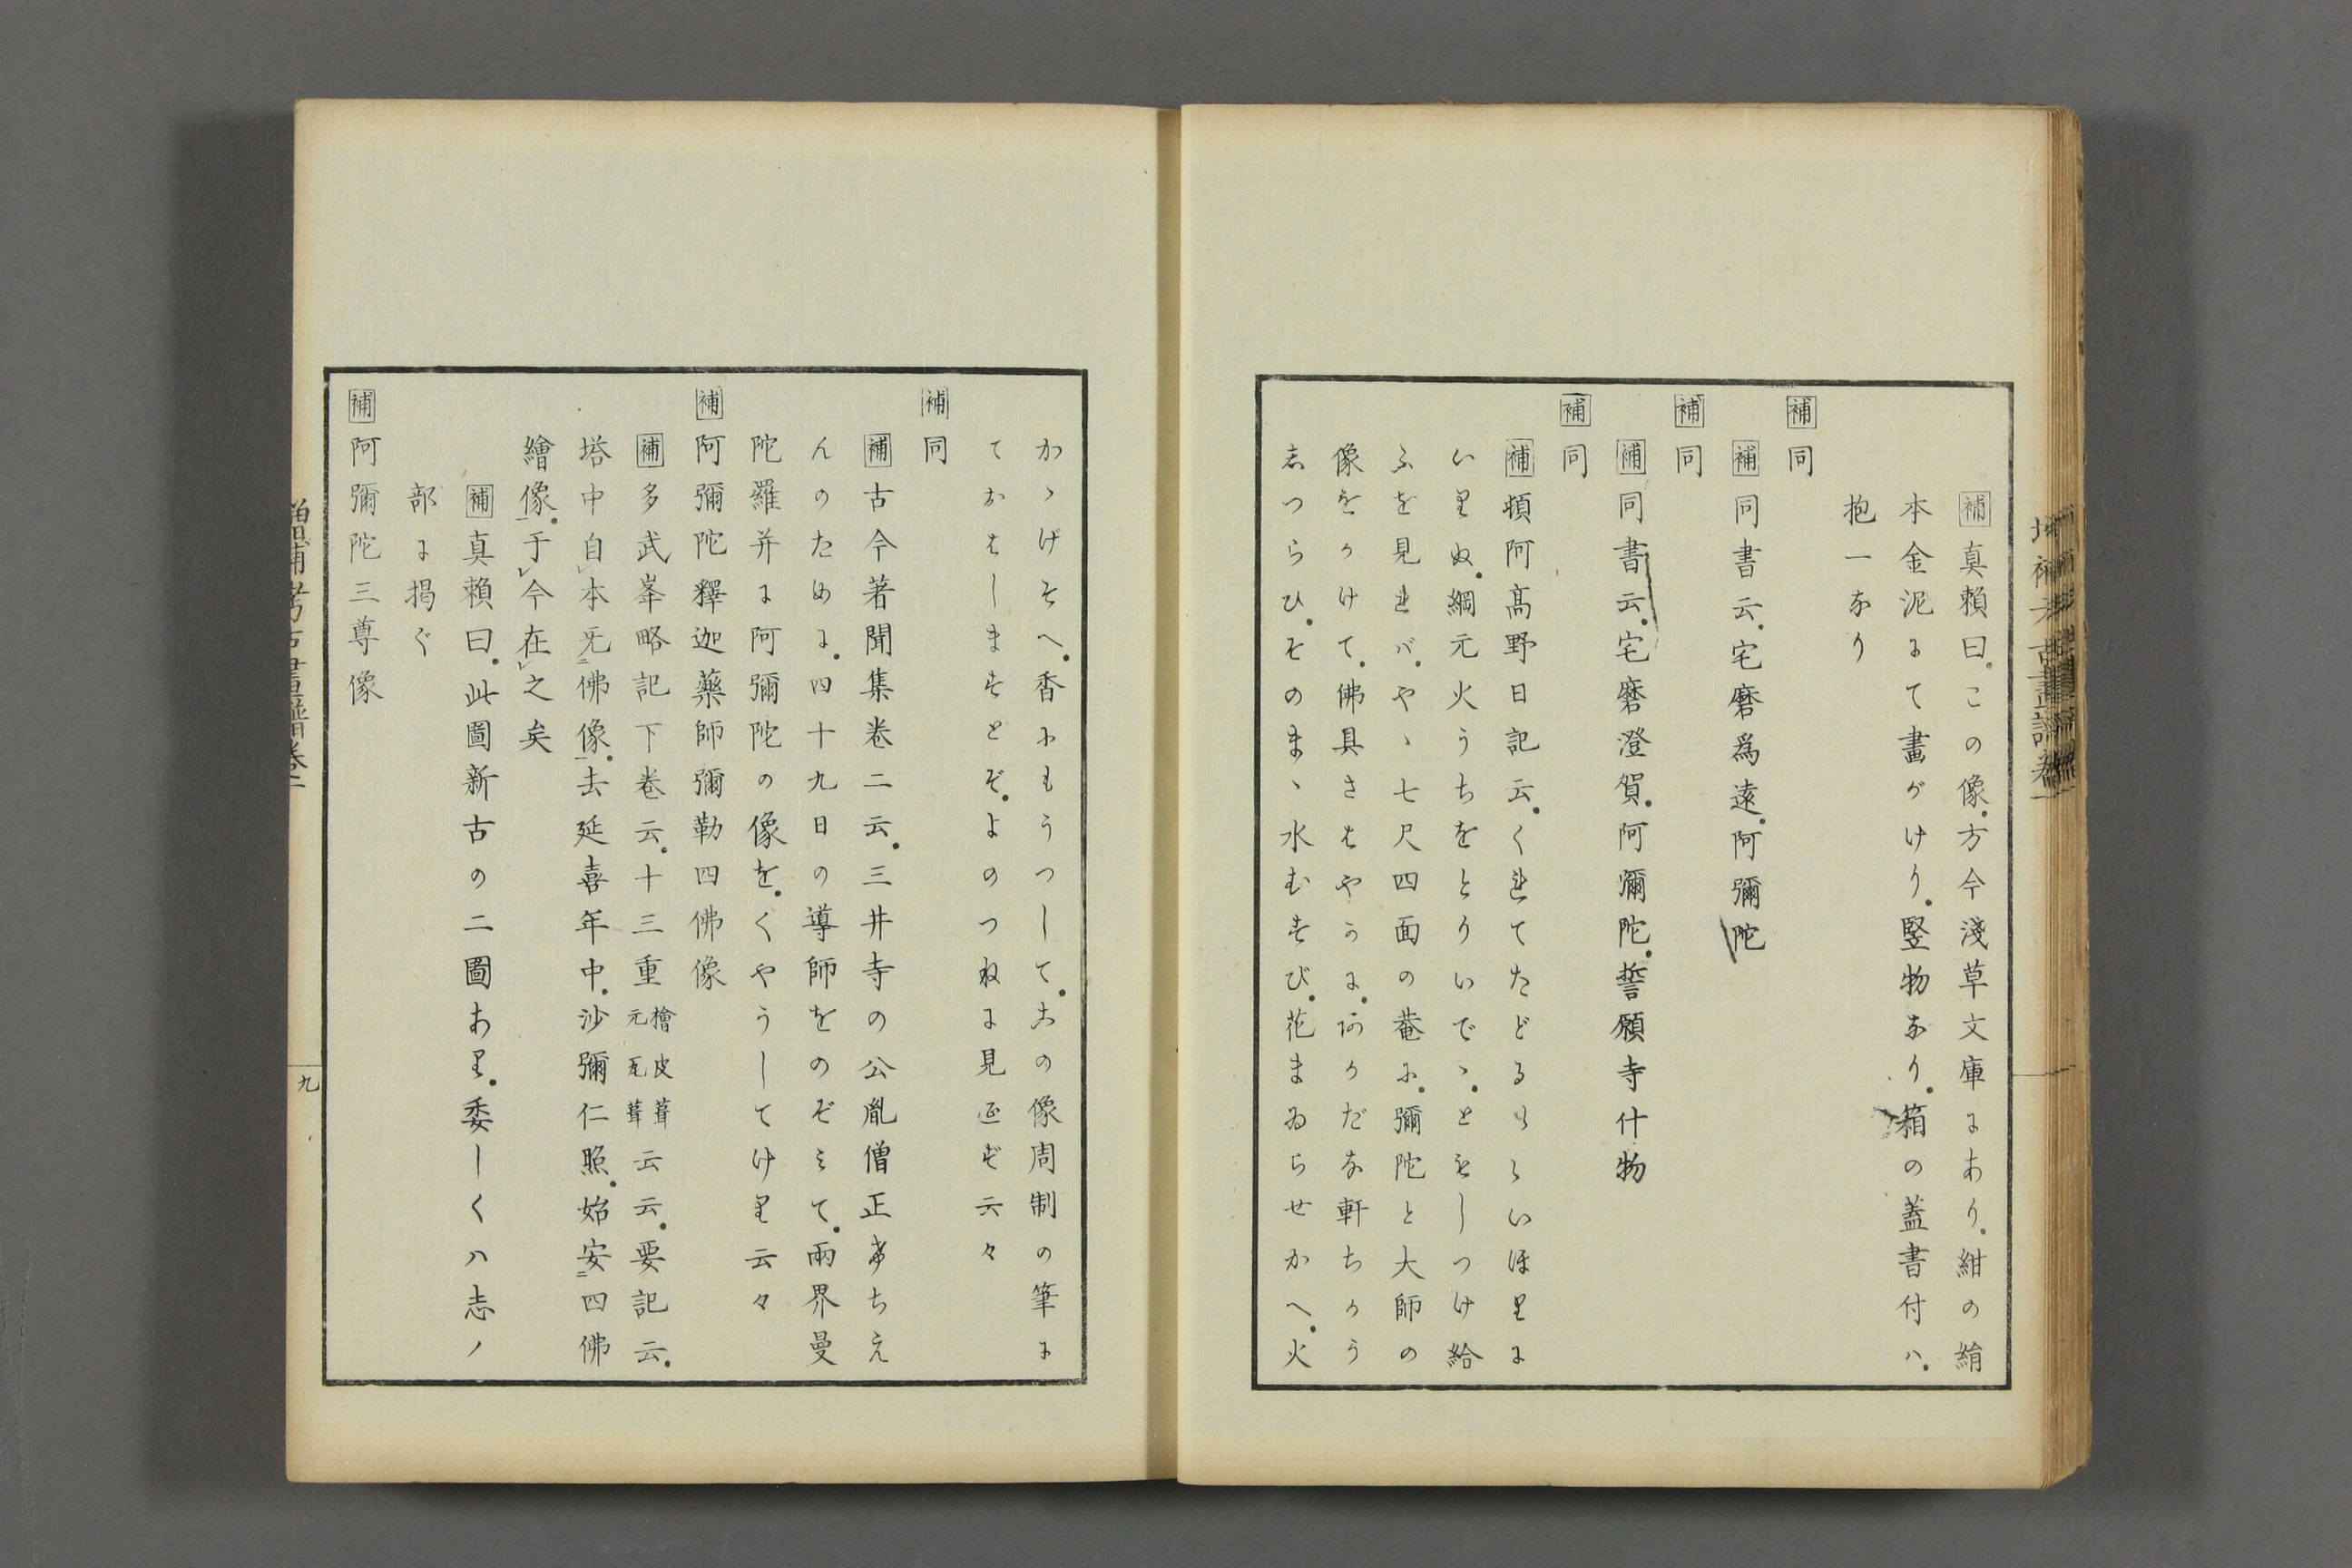 補真頼曰。この像。方今淺草文庫にあり。紺の絹
本金泥にて畫がけり。竪物なり。箱の蓋書付ハ。
抱一なり
補同
補同書云。宅磨爲遠。阿彌陀
補同
補同書云。宅磨澄賀。阿彌陀。誓願寺什物
補同
補頓阿髙野日記云。くれてたどるらいほりに
いりぬ。綱元火うちをとりいでゝ。ともしつけ給
ふを見れバ。やゝ七尺四面の菴に。彌陀と大師の
像をかけて。佛具さはやかに。あかだな軒ちかう
志つらひ。そのまゝ水むすび。花まゐらせかへ。火
かゝげそへ。香にもうつして。この像周制の筆に
ておはしますとぞ。よのつねに見えず云々
補同
補古今著聞集卷二云。三井寺の公胤僧正すちえ
んのために。四十九日の導師をのぞみて。兩界曼
陀羅并に阿彌陀の像を。くやうしてけり云々
補阿彌陀釋迦藥師彌勒四佛像
補多武峯略記下卷云。十三重檜皮葺元瓦葺云云。要記云。
塔中自本无佛像。去延喜年中。沙彌仁照。始安四佛
繪像。于今在之矣
補真頼曰。此圖新古の二圖あり。委しくハ志ノ
部に掲ぐ
補阿彌陀三尊像
増補考古畫譜卷二
九